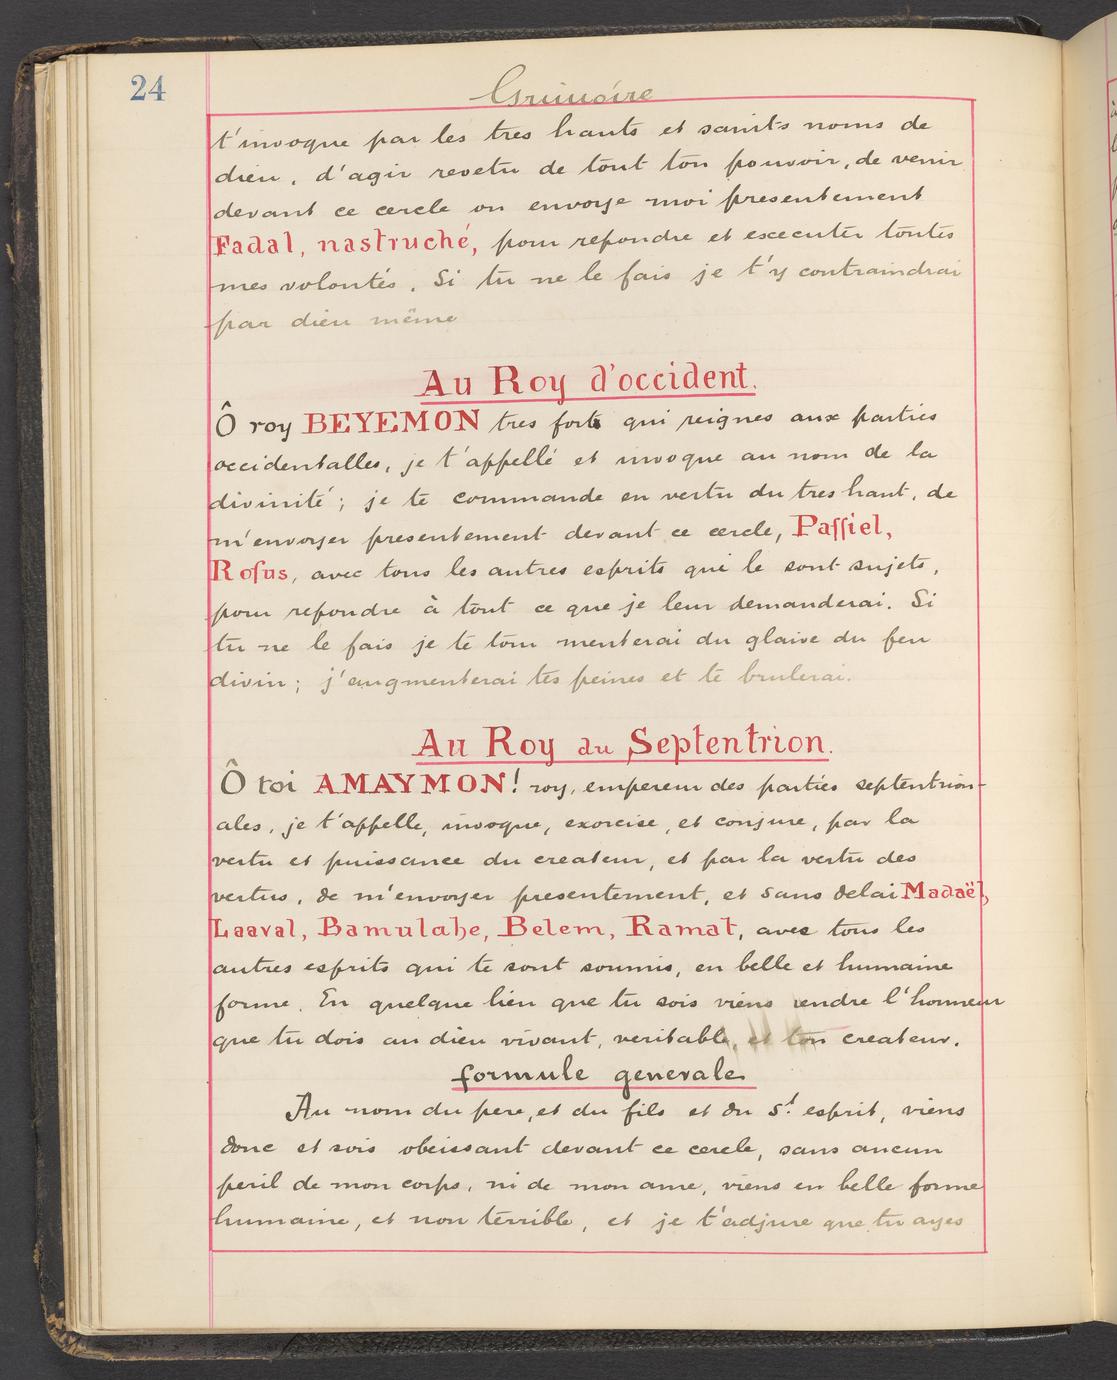 24
Grimoire
t'invoque par les tres hauts et saints noms de
dieu, d'agir revetu de tout ton pouvoir, de venir
devant ce cercle ou envoye moi presentement
Fadal, nastruché, pour repondre et executer toutes
mes volontés. Si tu ne le fais je t'y contraindrai
par dieu même
Au Roy d'occident.
Ô roy BEYEMON tres forts qui reignes aux parties
occidentalles, je t'appellé et invoque au nom de la
divinité; je te commande en vertu du tres haut, de
m'envoyer presentement devant ce cercle, Paſſiel,
Roſus, avec tous les autres esprits qui le sont sujets,
pour repondre à tout ce que je leur demanderai. Si
tu ne le fais je te tour menterai du glaive du feu
divin; j'augmenterai tes peines et te brulerai.
Au Roy du Septentrion.
Ô toi AMAYMON! roy, empereur des parties septentrion-
ales, je t'appelle, invoque, exorcise, et conjure, par la
vertu et puissance du createur, et par la vertu des
vertus, de m'envoyer presentement, et sans delai Madaël,
Laaval, Bamulahe, Belem, Ramat, avec tous les
autres esprits qui te sont soumis, en belle et humaine
forme. En quelque lieu que tu sois viens rendre l'honneur
que tu dois au dieu vivant, veritable, et ton createur.
formule generale
Au nom du pere, et du fils et du St. esprit, viens
donc et sois obeissant devant ce cercle, sans aucun
peril de mon corps, ni de mon ame, viens en belle forme
humaine, et non terrible, et je t'adjure que tu ayes